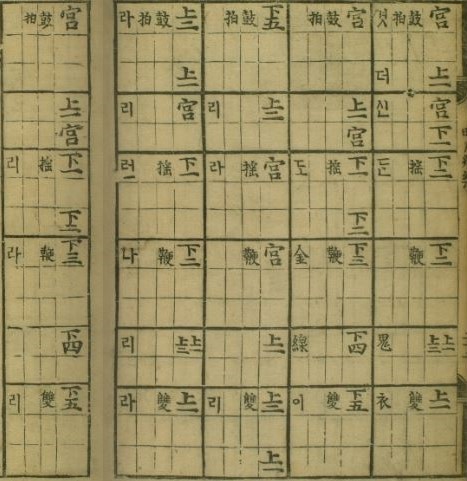 宮 上一 宮 下一 下二 下二 上一 上二 上一
鼓 搖 鞭 雙
拍
겻 더 신 ᄃᆞᆫ 鬼 衣
宮 上一 宮 下一 下二 下三 下四 下五
鼓 搖 鞭 雙
拍
도 金 線 이
下五 上二 宮 宮 上一 上二 上一
鼓 搖 鞭 雙
拍
리 라 리
上二 上一 宮 下一 下二 上一 上二 上二
鼓 搖 鞭 雙
拍
라 리 러 나 리 라
宮 上一 宮 下一 下二 下三 下四 下五
鼓 搖 鞭 雙
拍
리 라 리